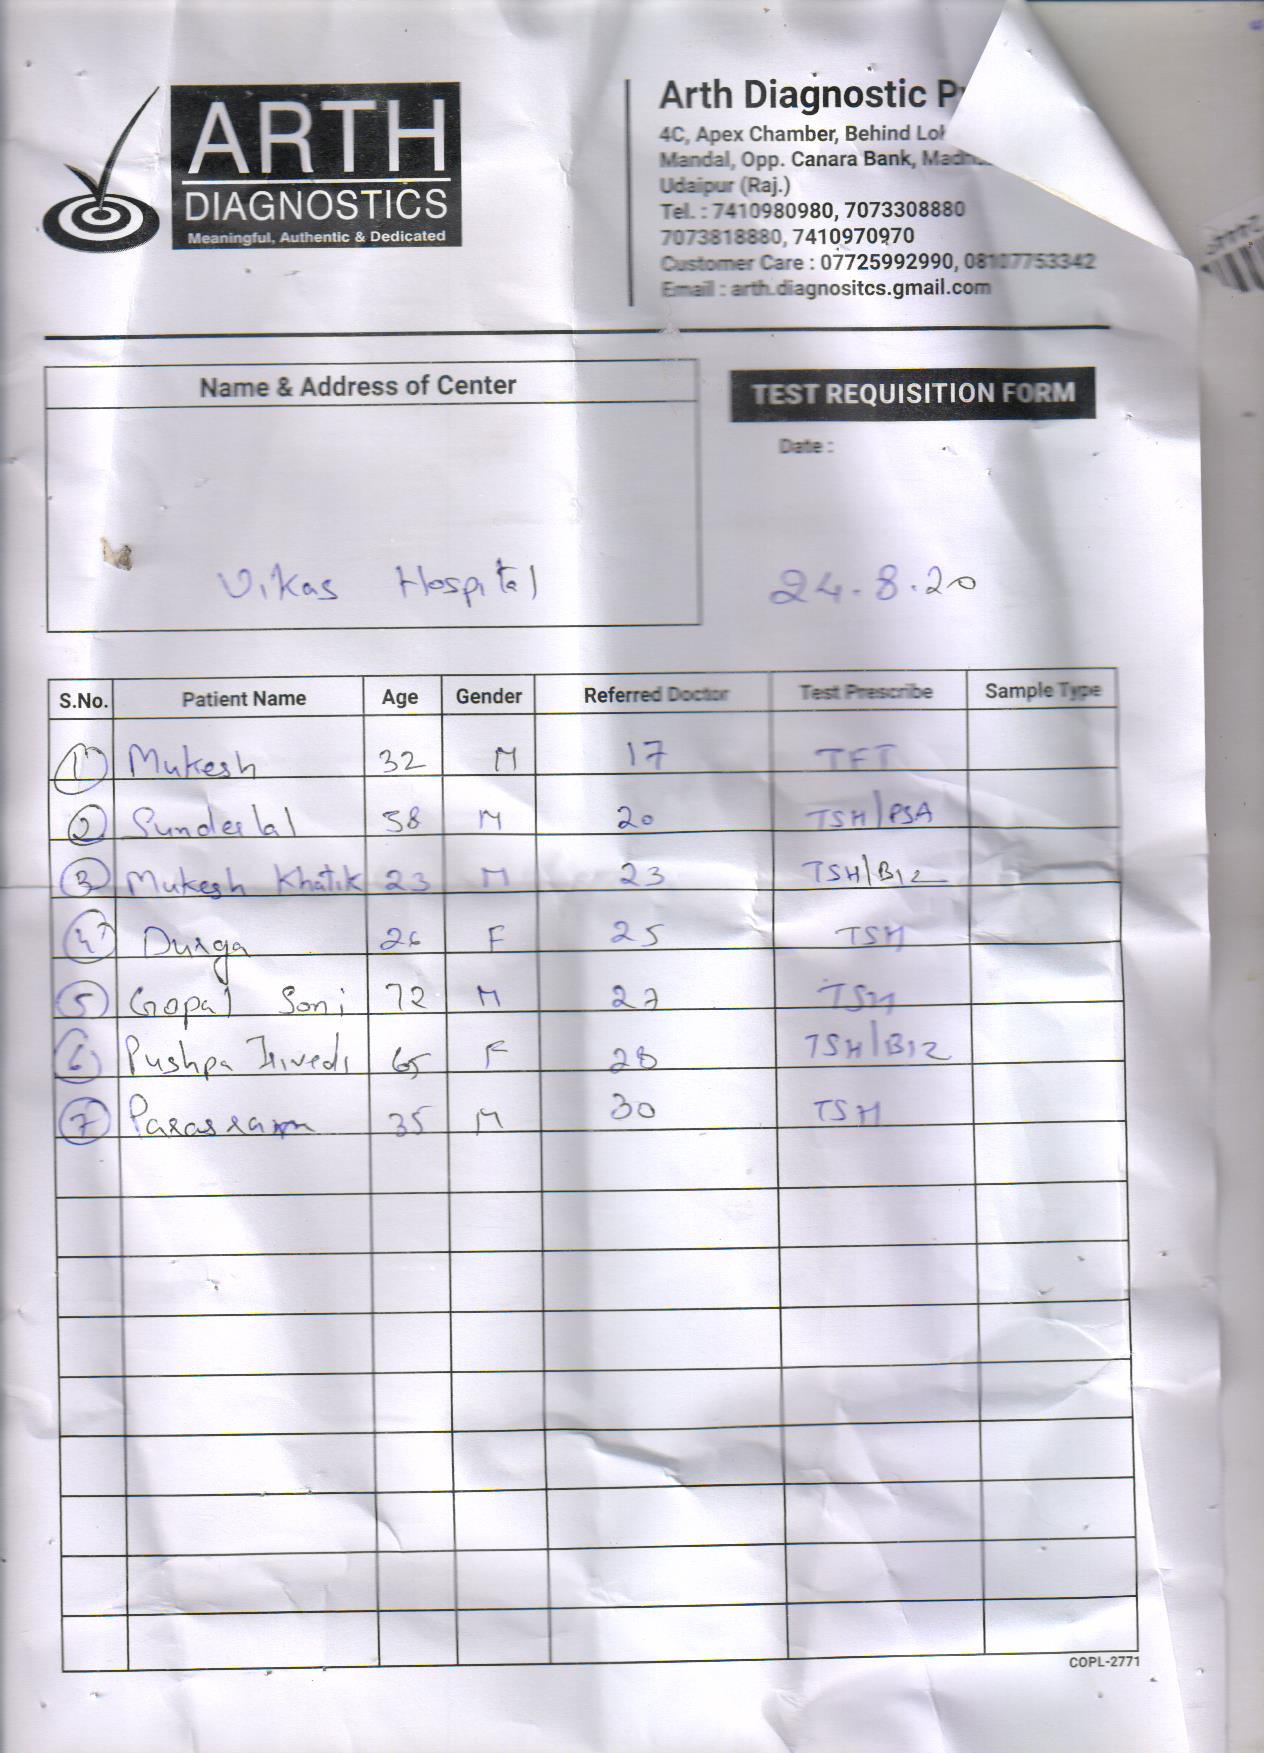 ARTH
DIAGNOSTICS
Meaningful, Authentic & Dedicated
Arth Diagnostic
4C, Apex Chamber, Behind
Mandal, Opp. Canara Bank,
Udaipur (Raj.)
Tel. : 7410980980, 7073308880
7073818880, 7410970970
Customer Care : 07725992990, 08107753342
Email : arth.diagnositcs.gmail.com
Name & Address of Center
TEST REQUISITION FORM
Date :
Vikas Hospital
24.8.20
S.No. Patient Name Age Gender Referred Doctor Test Prescribe Sample Type
1 Mukesh 32 M 17 TFT
2 Sunderlal 58 M 20 TSH/PSA
3 Mukesh Khatik 23 M 23 TSH/B12
4 Durga 26 F 25 TSH
5 Gopal Soni 72 M 27 TSH
6 Pushpa Trivedi 65 F 28 TSH/B12
7 Parasram 35 M 30 TSH
COPL-2771